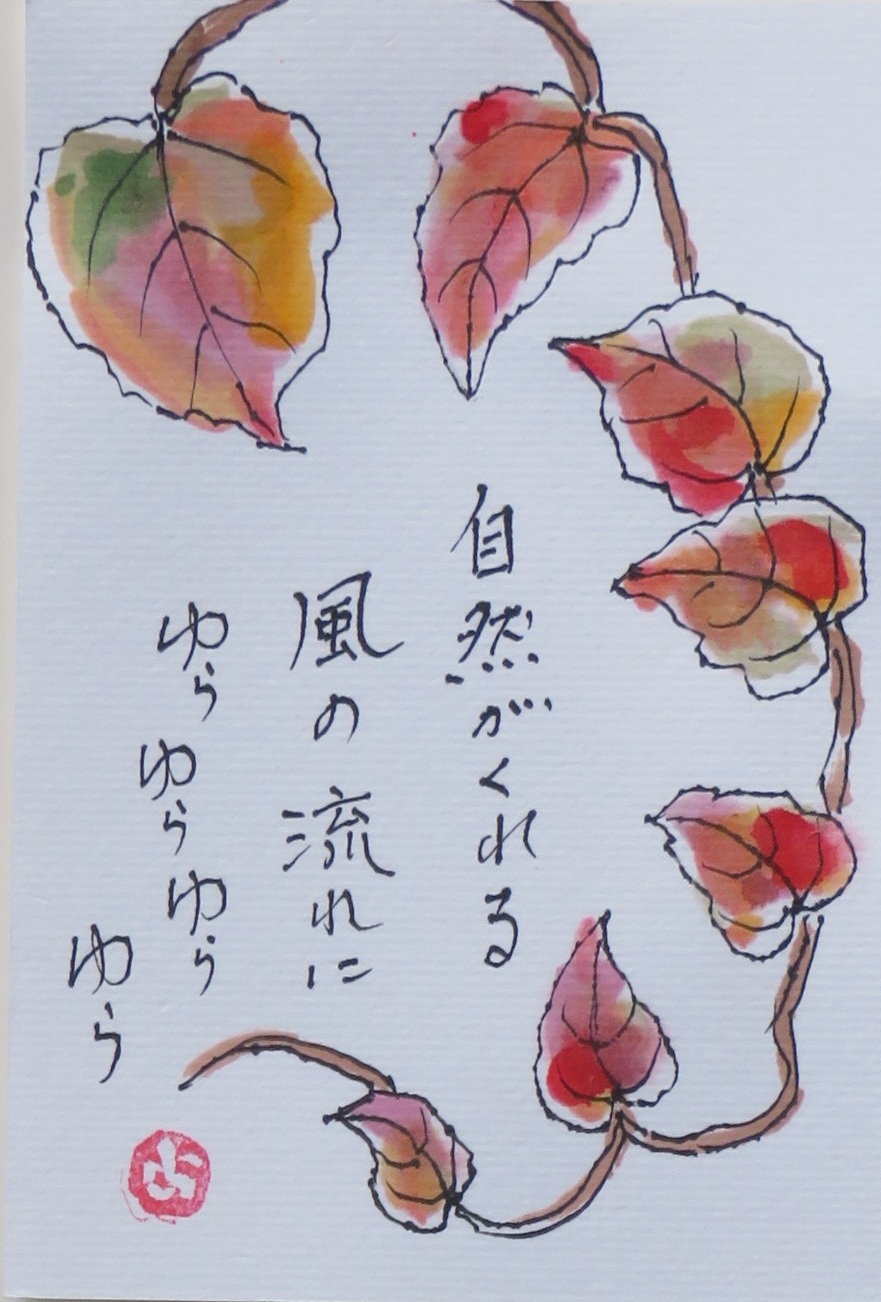 自然がくれる
風の流れに
ゆらゆらゆら
ゆら